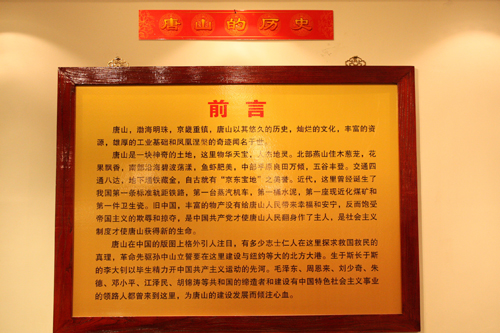 唐山的历史
前言
唐山，渤海明珠，京畿重镇，唐山以其悠久的历史，灿烂的文化，丰富的资
源，雄厚的工业基础和凤凰涅槃的奇迹闻名于世。
唐山是一块神奇的土地，这里物华天宝，人杰地灵。北部燕山佳木葱茏，花
果飘香，南部沿海碧波荡漾，鱼虾肥美，中部平原良田万顷，五谷丰登。交通四
通八达，地下埋铁藏金，自古就有“京东宝地”之美誉。近代，这里曾经诞生了
我国第一条标准轨距铁路，第一台蒸汽机车，第一桶水泥，第一座现近化煤矿和
第一件卫生瓷。旧中国，丰富的物产没有给唐山人民带来幸福和安宁，反而饱受
帝国主义的欺辱和掠夺，是中国共产党才使唐山人民翻身作了主人，是社会主义
制度才使唐山获得新的生命。
唐山在中国的版图上格外引人注目，有多少志士仁人在这里探求救国救民的
真理，革命先驱孙中山立誓要在这里建设与纽约等大的北方大港。生于斯长于斯
的李大钊以毕生精力开中国共产主义运动的先河。毛泽东、周恩来、刘少奇、朱
德、邓小平、江泽民、胡锦涛等共和国的缔造者和建设有中国特色社会主义事业
的领路人都曾来到这里，为唐山的建设发展而倾注心血。